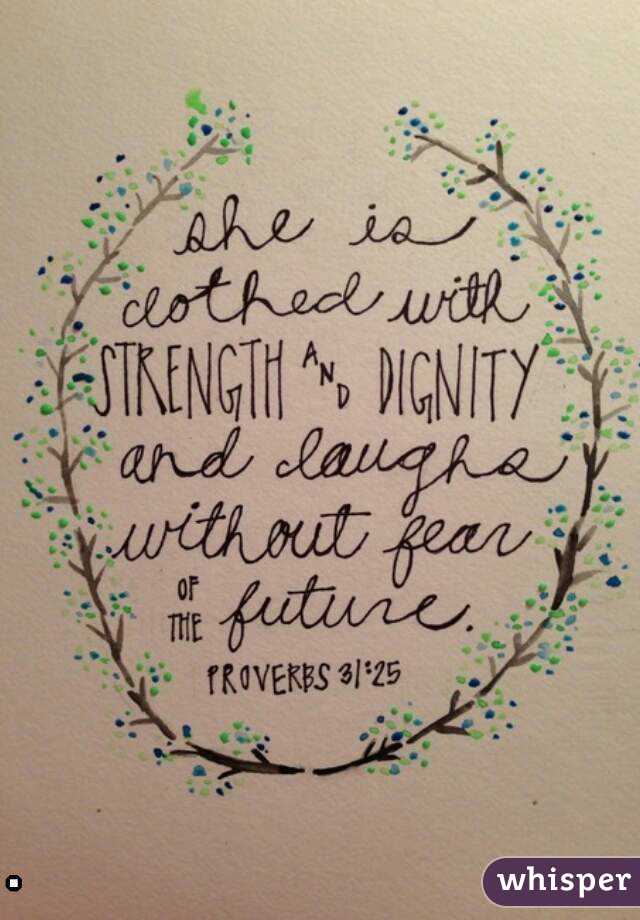 she is
clothed with
STRENGTH AND DIGNITY
and laughs
without fear
OF THE future.
PROVERBS 31:25
whisper